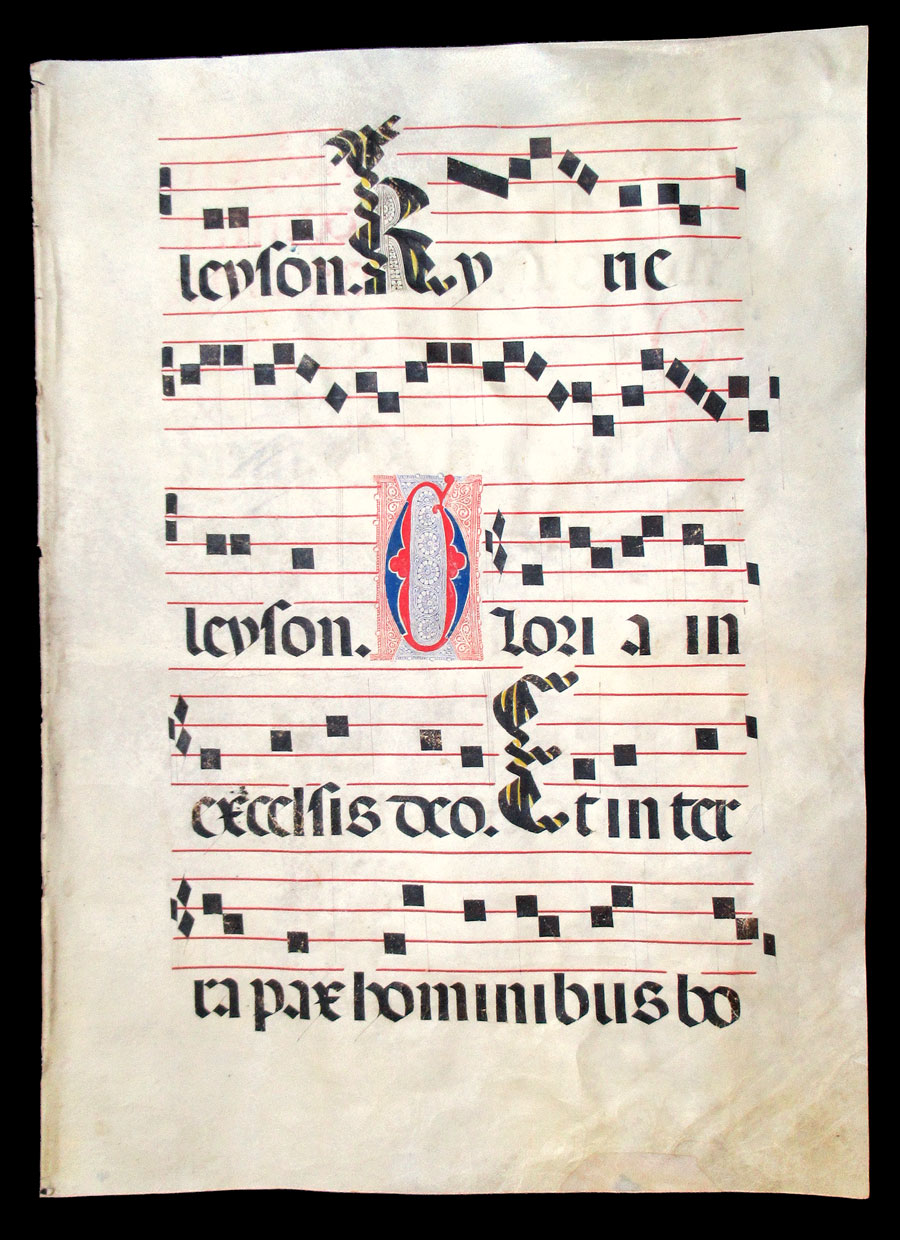 leyson. Ky rie
leyson. Glori a in
excelsis deo. Et in ter
ra pax hominibus bo